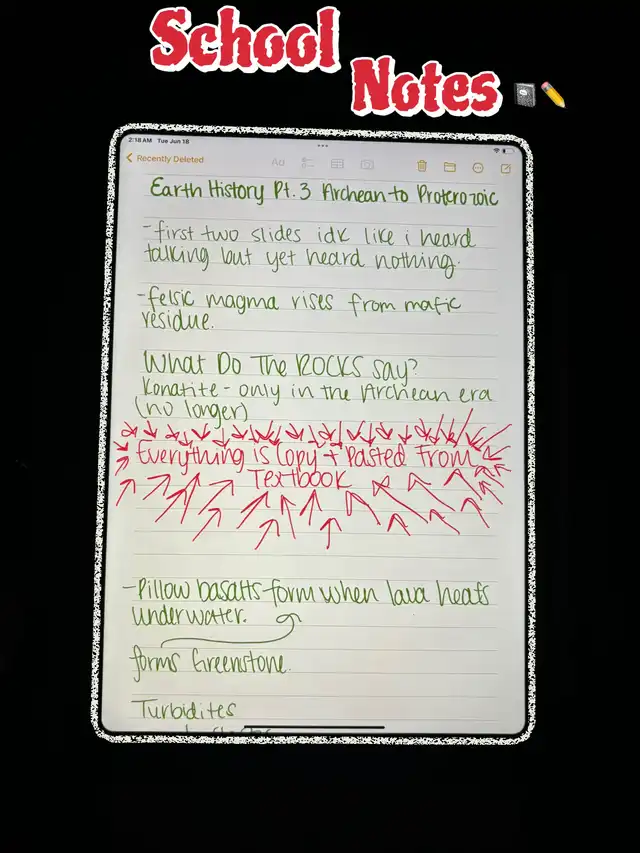 School
Notes
2:18 AM Tue Jun 18
Recently Deleted
Aa
Earth History Pt. 3 Archean to Proterozoic
-first two slides idk like i heard
talking but yet heard nothing.
-felsic magma rises from mafic
residue.
What Do The ROCKS say?
Konatite - only in the Archean era
(no longer)
Everything is Copy + Pasted from
Textbook
-Pillow basalts-form when lava heats
underwater.
forms Greenstone.
Turbidites